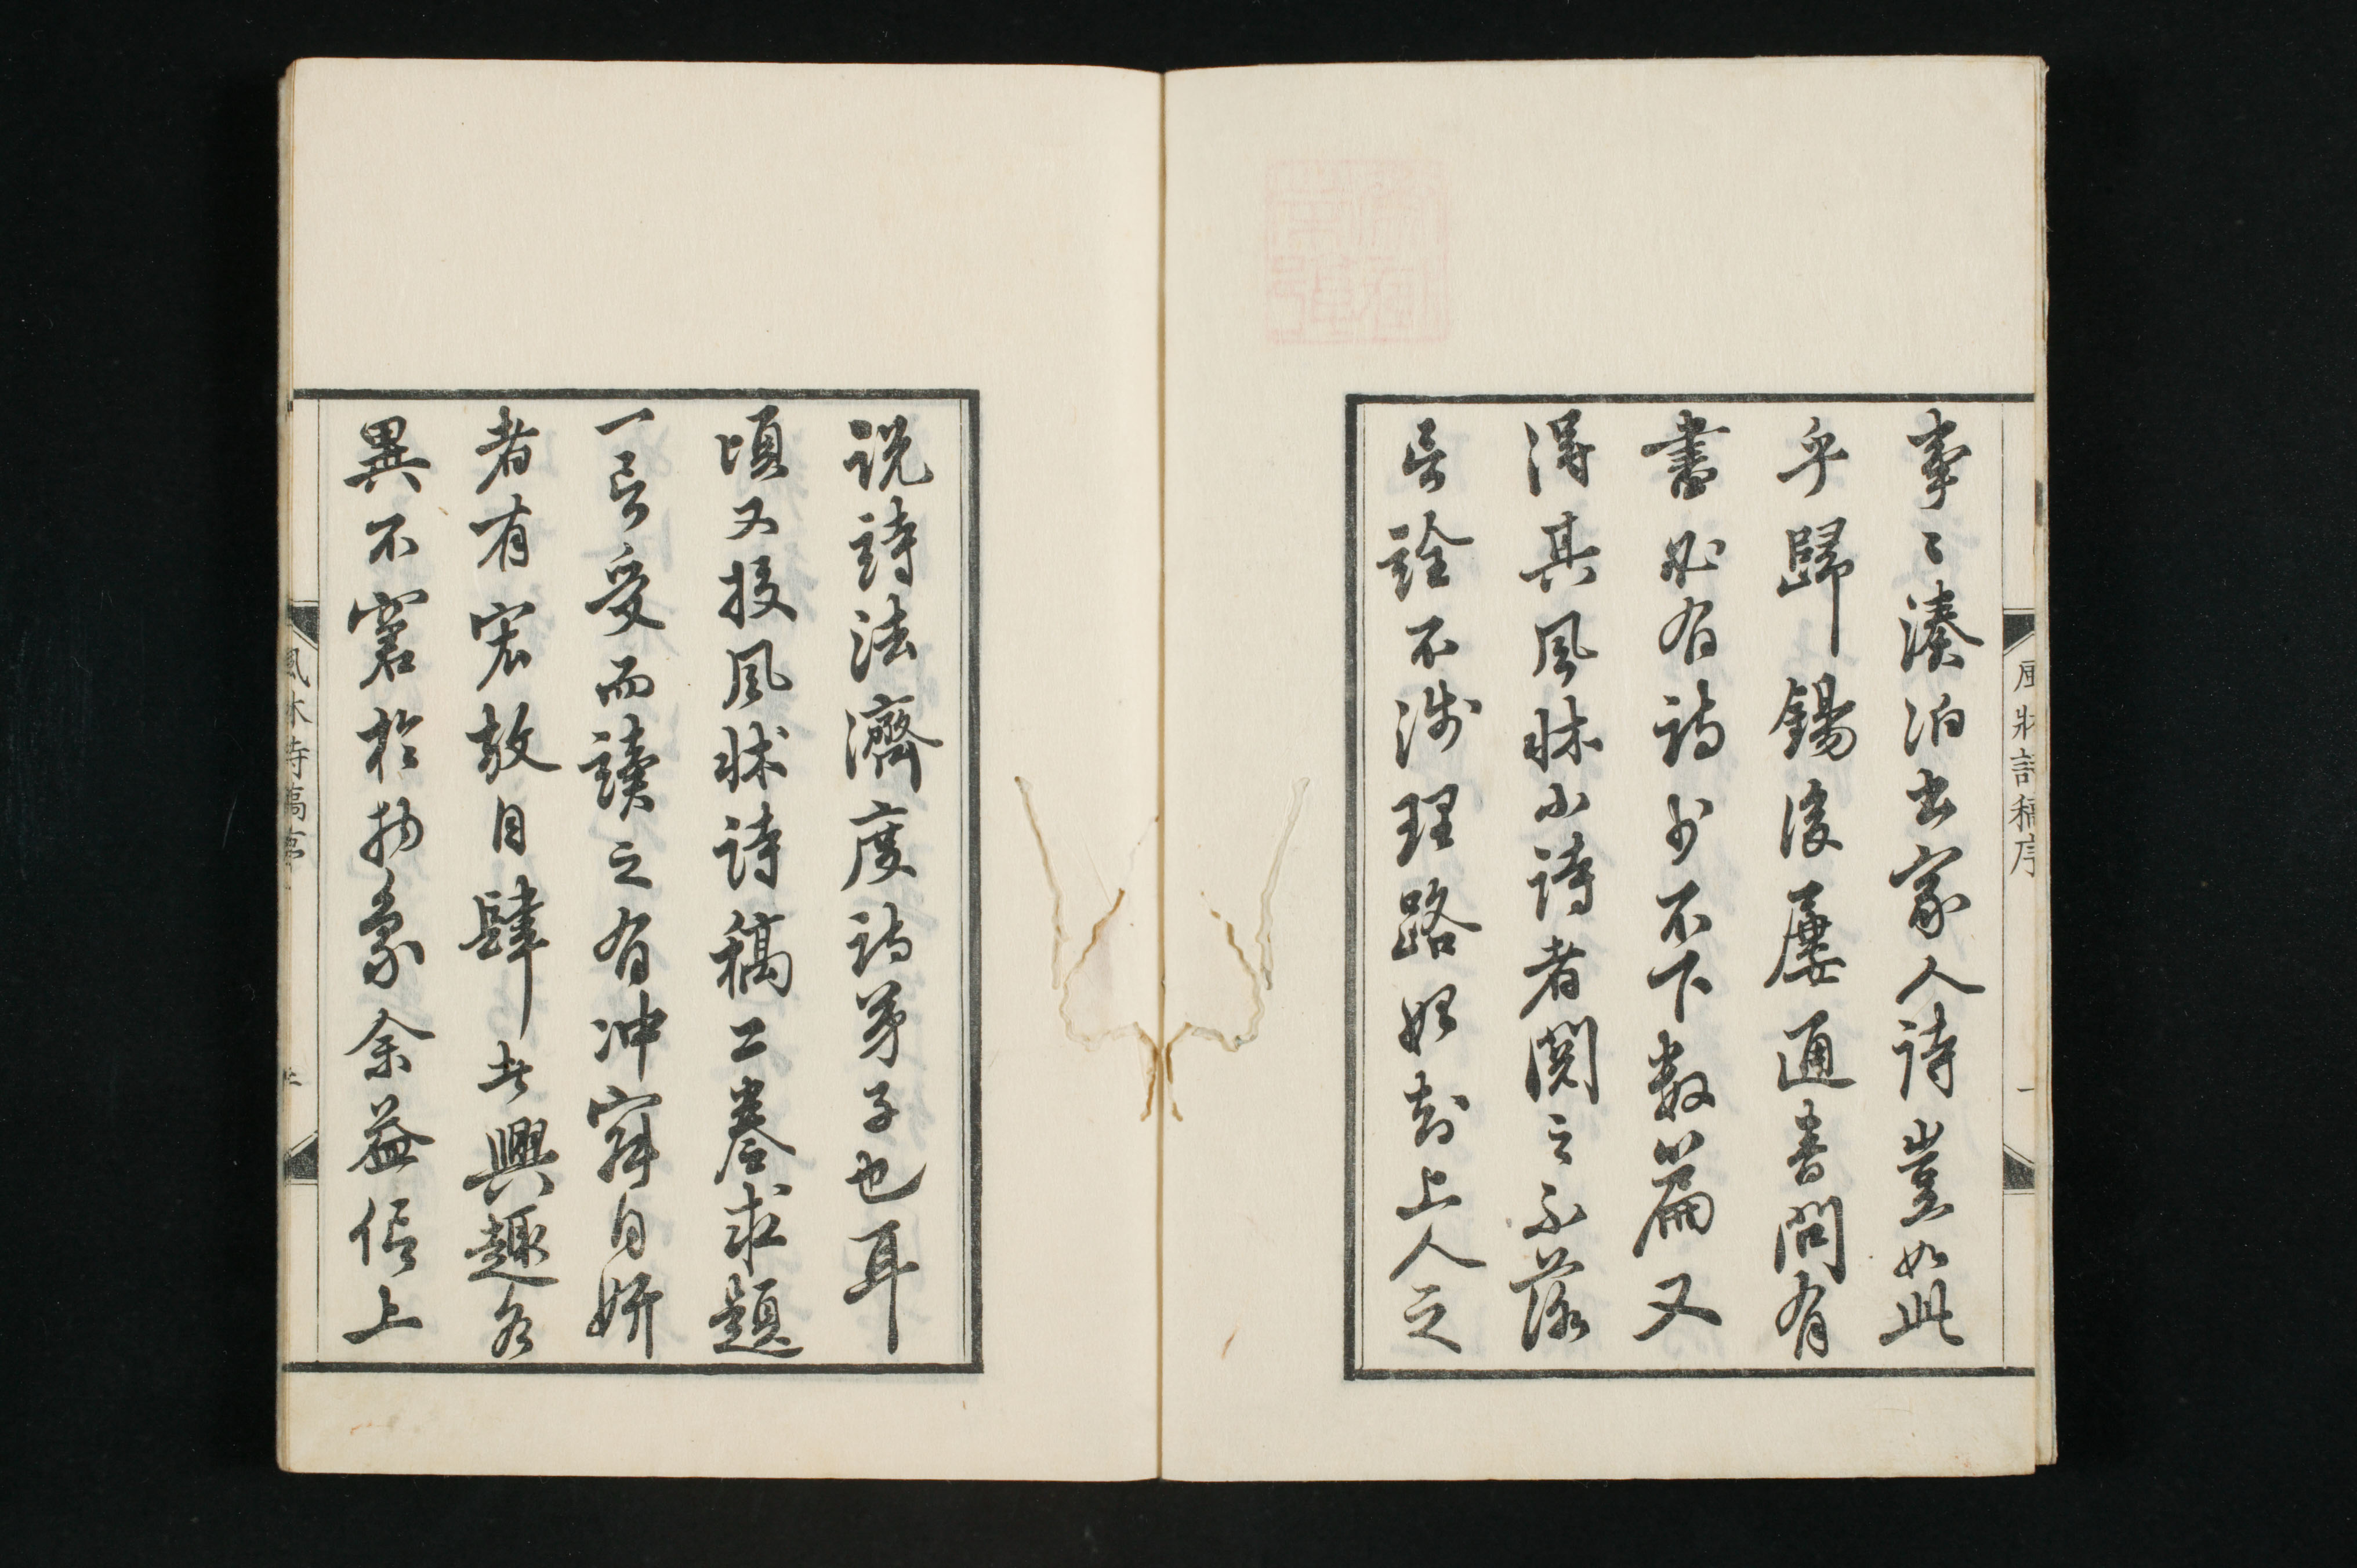 事〻湊泊出家人詩豈如此
乎歸錫後屢通書問有
書必有詩少不下數篇又
得其風牀小詩者閱之不落
言詮不涉理路如對上人之
説詩法濟度詩弟子也耳
頃又投風牀詩稿二卷求題
一言受而讀之有冲穆自妍
者有宏敞自肆者興趣各
異不窘於物象余益信上
風牀詩稿序
一
風牀詩稿序